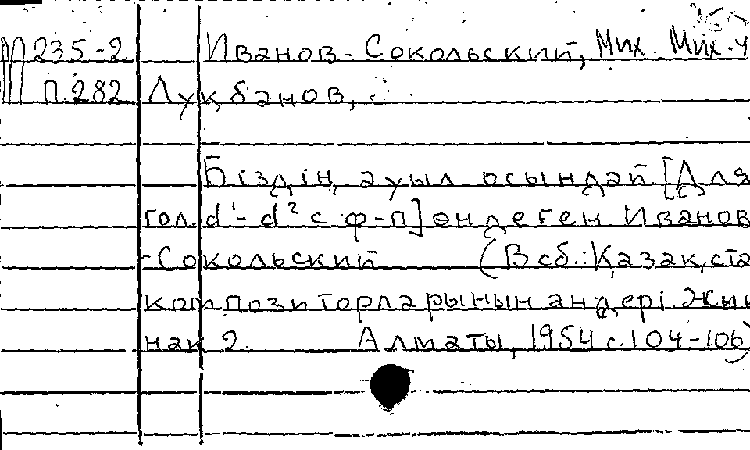 М235-2 Иванов-Сокольский, Мих. Мих. и
П.282 Луқбанов,
Біздің ауыл осындай [Для
гол. d¹-d² с ф-п] өңдеген Иванов
-Сокольский (В сб.: Қазақста
композиторларының әндері. Жый
нақ 2. Алматы, 1954 с. 104-106)